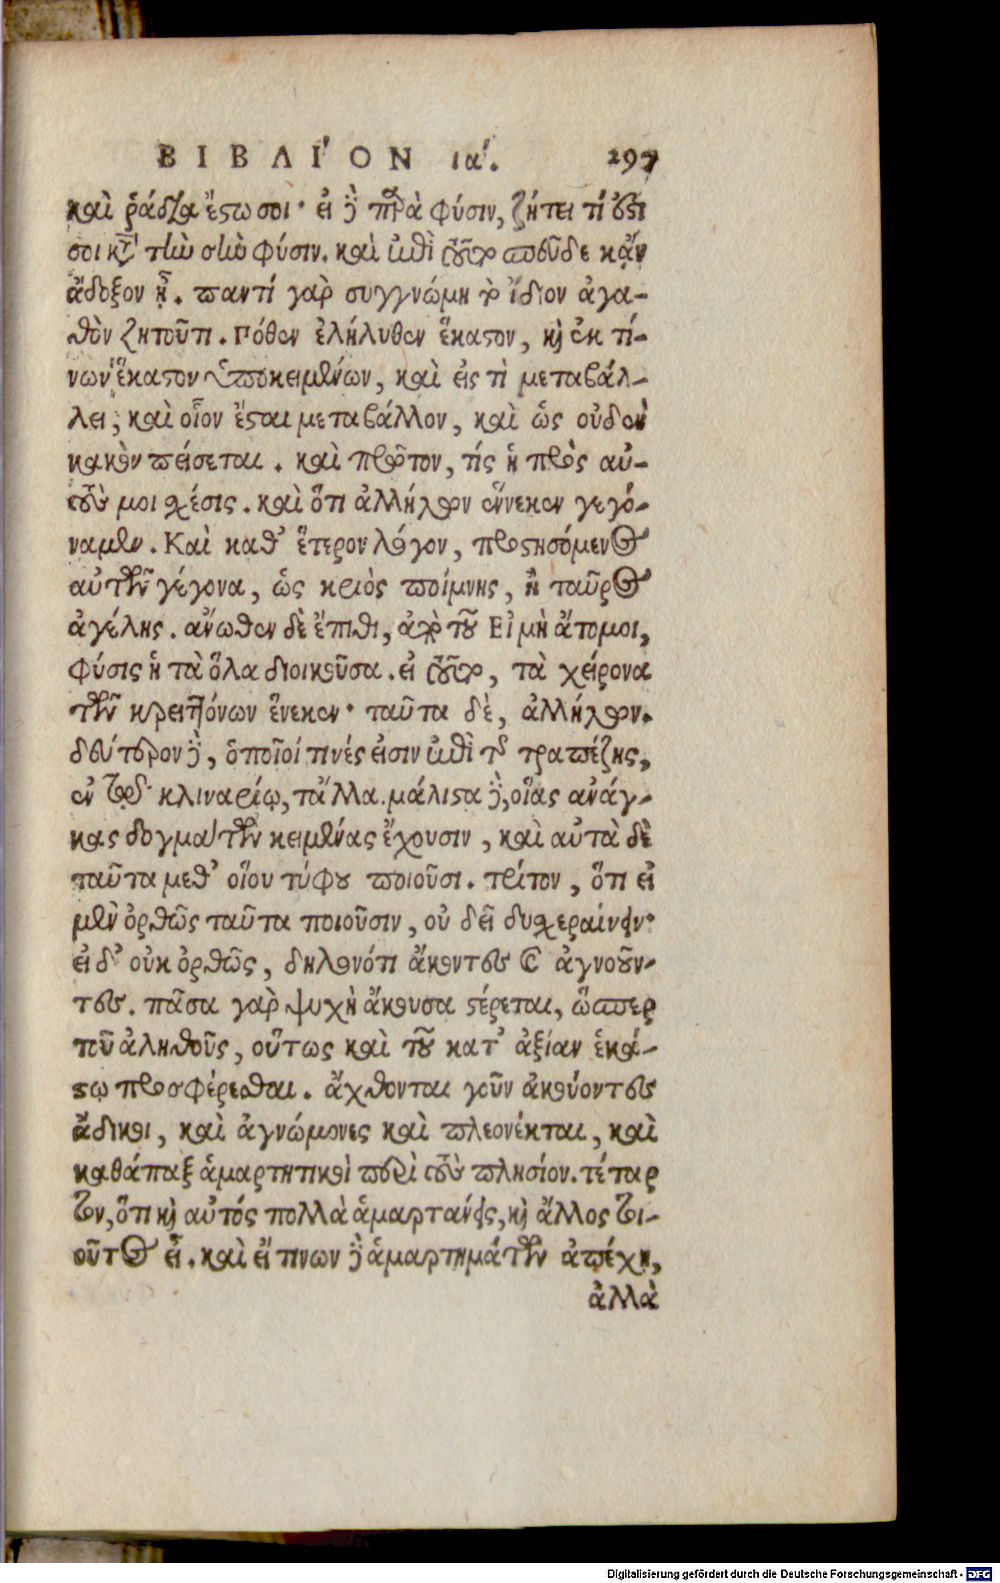 ΒΙΒΛΙ´ΟΝ ια´. 297
καὶ ῥάδια ἔστω σοι· εἰ δὲ παρὰ φύσιν, ζήτει τί ἐστί
σοι κτ̀ τὴν σὴν φύσιν. καὶ ἐπὶ τοῦτο σπεῦδε κᾂν
ἄδοξον ᾖ. παντὶ γὰρ συγγνώμη τὸ ἴδιον ἀγα-
θὸν ζητοῦτι. Πόθεν ἐλήλυθεν ἕκαστον, καὶ ἐκ τί-
νων ἕκαστον ὑποκειμένων, καὶ εἰς τὶ μεταβάλ-
λει, καὶ οἷον ἔσται μεταβάλλον, καὶ ὡς οὐδὲν
κακὸν πείσεται. καὶ πρῶτον, τίς ἡ πρὸς αὐ-
τοὺς μοι σχέσις. καὶ ὅτι ἀλλήλων ἕνεκεν γεγό-
ναμεν. Καὶ καθ' ἕτερον λόγον, προστησόμενος
αὐτῶν γέγονα, ὡς κριὸς ποίμνης, ἢ ταῦρος
ἀγέλης. ἄνωθεν δὲ ἔπιθι, ἀπὸ τοῦ Εἰ μὴ ἄτομοι,
φύσις ἡ τὰ ὅλα διοικοῦσα. εἰ τοῦτο, τὰ χείρονα
τῶν κρειττόνων ἕνεκεν· ταῦτα δὲ, ἀλλήλων.
δεύτερον δὲ, ὁποῖοί τινές εἰσιν ἐπὶ τῆς τραπέζης,
ἐν τῷ κλιναρίῳ, τἄλλα. μάλιστα δὲ, οἵας ἀνάγ-
κας δογμάτων κειμένας ἔχουσιν, καὶ αὐτὰ δὲ
ταῦτα μεθ' οἵου τύφου ποιοῦσι. τρίτον, ὅτι εἰ
μὲν ὀρθῶς ταῦτα ποιοῦσιν, οὐ δεῖ δυσχεραίνειν·
εἰ δ' οὐκ ὀρθῶς, δηλονότι ἄκοντες καὶ ἀγνοοῦν-
τες. πᾶσα γὰρ ψυχὴ ἄκουσα στέρεται, ὥσπερ
τοῦ ἀληθοῦς, οὕτως καὶ τοῦ κατ' ἀξίαν ἑκά-
στῳ προσφέρεσθαι. ἄχθονται γοῦν ἀκούοντες
ἄδικοι, καὶ ἀγνώμονες καὶ πλεονέκται, καὶ
καθάπαξ ἁμαρτητικοὶ περὶ τοὺς πλησίον. τέταρ
τον, ὅτι καὶ αὐτός πολλὰ ἁμαρτάνεις, καὶ ἄλλος τοι-
οῦτος εἶ. καὶ εἴ τινων δὲ ἁμαρτημάτων ἀπέχῃ,
ἀλλὰ
Digitalisierung gefördert durch die Deutsche Forschungsgemeinschaft - DFG